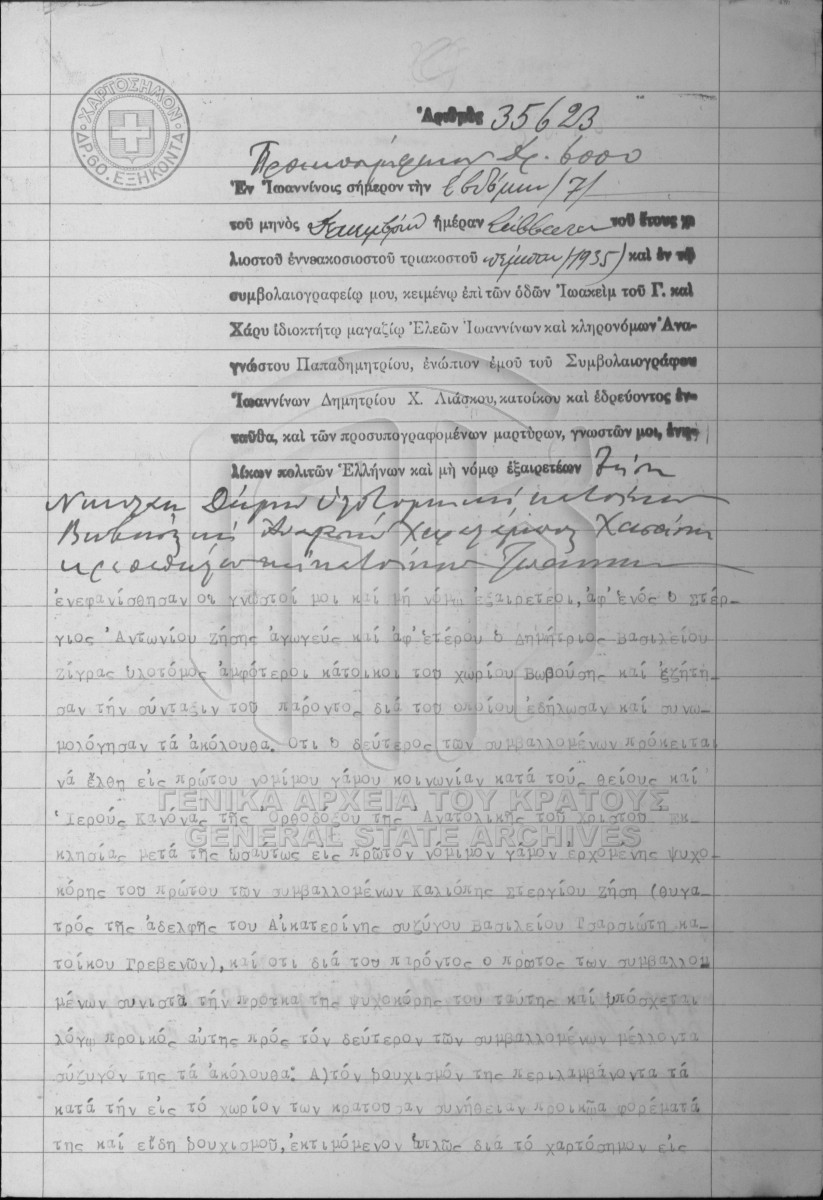 ΧΑΡΤΟΣΗΜΟΝ
ΔΡ. 60. ΕΞΗΚΟΝΤΑ
Ἀριθμὸς 35623
Προικοσύμφωνον Δρ. 6000
Ἐν Ἰωαννίνοις σήμερον τὴν ἑβδόμην /7/
τοῦ μηνὸς Δεκεμβρίου ἡμέραν Σάββατον τοῦ ἔτους χι
λιοστοῦ ἐννεακοσιοστοῦ τριακοστοῦ πέμπτου /1935) καὶ ἐν τῷ
συμβολαιογραφείῳ μου, κειμένῳ ἐπὶ τῶν ὁδῶν Ἰωακεὶμ τοῦ Γ. καὶ
Χάρυ ἰδιοκτήτῳ μαγαζίῳ Ἐλεῶν Ἰωαννίνων καὶ κληρονόμων Ἀνα-
γνώστου Παπαδημητρίου, ἐνώπιον ἐμοῦ τοῦ Συμβολαιογράφου
Ἰωαννίνων Δημητρίου Χ. Λιάσκου, κατοίκου καὶ ἑδρεύοντος ἐν-
ταῦθα, καὶ τῶν προσυπογραφομένων μαρτύρων, γνωστῶν μοι, ἐνη-
λίκων πολιτῶν Ἑλλήνων καὶ μὴ νόμῳ ἐξαιρετέων
Νικολάου ὑλοτόμου καὶ κατοίκου
Χαραλάμπους
καὶ κατοίκου Ἰωαννίνων
ἐνεφανίσθησαν οι γνωστοί μοι καί μή νόμῳ ἐξαιρετέοι, ἀφ'ἑνός ὁ Στέρ-
γιος Ἀντωνίου Ζήσης ἀγωγεύς καί ἀφ'ἑτέρου ὁ Δημήτριος Βασιλείου
Ζίγρας ὑλοτόμος ἀμφότεροι κάτοικοι του χωρίου Βωβούσης καί ἐζήτη-
σαν τήν σύνταξιν τοῦ παρόντος διά τοῦ οποίου ἐδήλωσαν καί συνω-
μολόγησαν τά ἀκόλουθα. Οτι ὁ δεύτερος τῶν συμβαλλομένων πρόκειται
νά ἔλθη εἰς πρώτου νομίμου γάμου κοινωνίαν κατά τούς θείους καί
Ἱερούς Κανόνας τῆς Ὀρθοδόξου τῆς Ἀνατολικῆς τοῦ Χριστοῦ Ἐκ-
κλησίας μετά τῆς ὡσαύτως εἰς πρῶτον νόμιμον γάμον ἐρχομένης ψυχο-
κόρης του πρώτου τῶν συμβαλλομένων Καλιόπης Στεργίου Ζήση (θυγα-
τρός τῆς ἀδελφῆς του Αἰκατερίνης συζύγου Βασιλείου Τσαρσιώτη κα-
τοίκου Γρεβενῶν), καί οτι διά του παρόντος ο πρῶτος των συμβαλλο-
μένων συνιστᾶ τήν προῖκα τῆς ψυχοκόρης του ταύτης καί ὑπόσχεται
λόγῳ προικός αὐτης πρός τόν δεύτερον τῶν συμβαλλομένων μέλλοντα
σύζυγόν της τά ἀκόλουθα: Α)τόν ρουχισμόν της περιλαμβάνοντα τά
κατά τήν εἰς τό χωρίον των κρατοῦσαν συνήθειαν προικῶα φορέματά
της καί εἴδη ρουχισμοῦ, ἐκτιμόμενον ἁπλῶς διά τό χαρτόσημον εἰς
ΓΕΝΙΚΑ ΑΡΧΕΙΑ ΤΟΥ ΚΡΑΤΟΥΣ
GENERAL STATE ARCHIVES